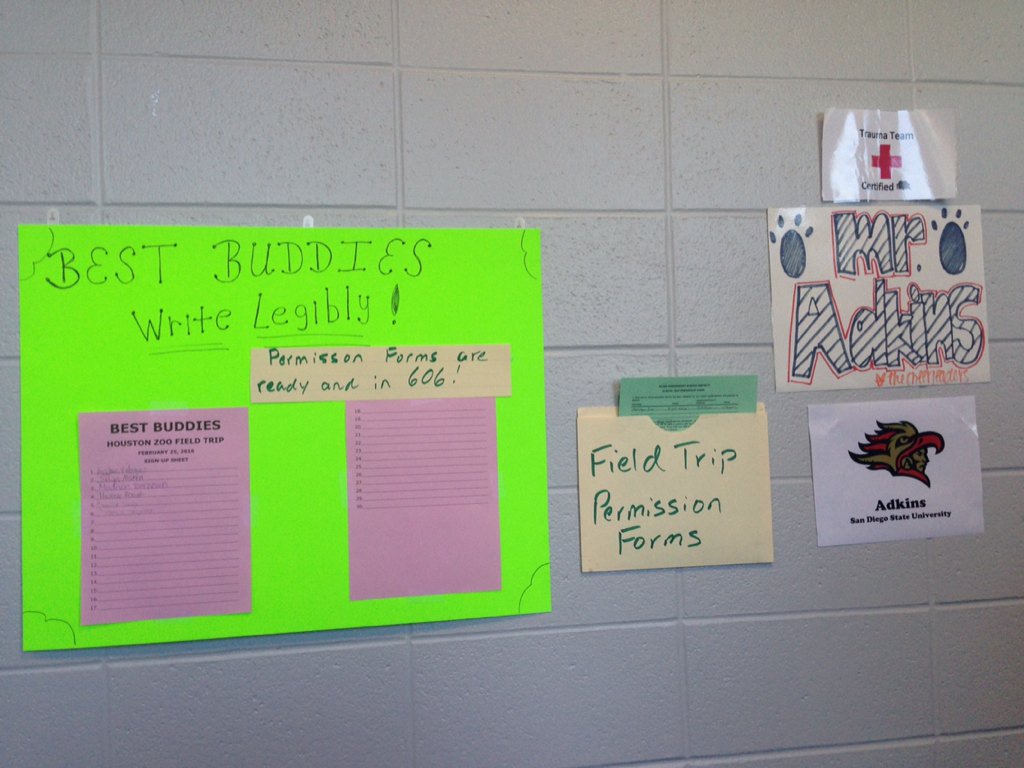 BEST BUDDIES
Write Legibly!
Permission Forms are
ready and in 606!
BEST BUDDIES
HOUSTON ZOO FIELD TRIP
FEBRUARY 25, 2016
SIGN UP SHEET
1.
2.
3. Madison
4.
5.
6.
7.
8.
9.
10.
11.
12.
13.
14.
15.
16.
17.
18.
19.
20.
21.
22.
23.
24.
25.
26.
27.
28.
29.
30.
Field Trip
Permission
Forms
Trauma Team
Certified
Mr.
Adkins
♥ the cheerleaders
Adkins
San Diego State University